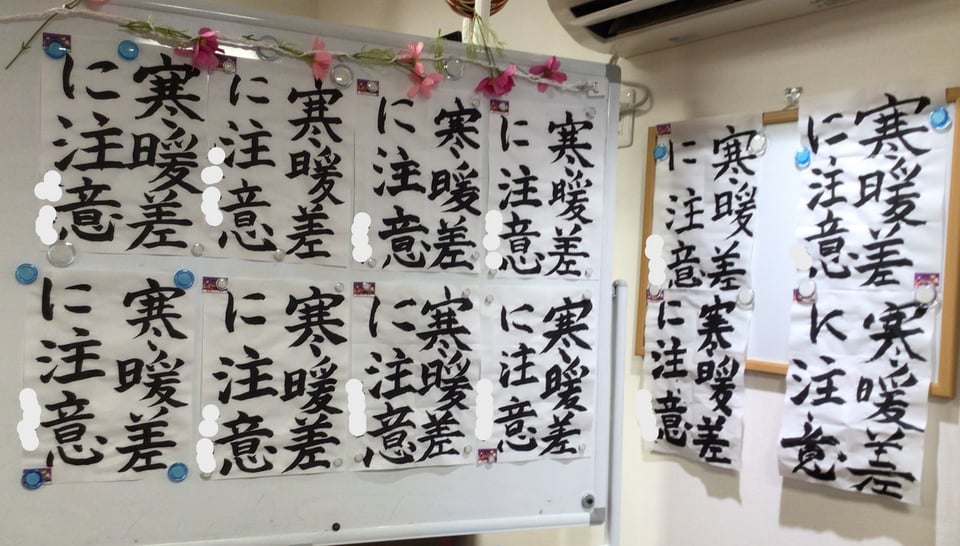 寒暖差
に注意
寒暖差
に注意
寒暖差
に注意
寒暖差
に注意
寒暖差
に注意
寒暖差
に注意
寒暖差
に注意
寒暖差
に注意
寒暖差
に注意
寒暖差
に注意
寒暖差
に注意
寒暖差
に注意